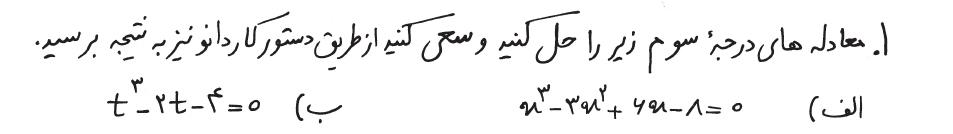 ۱. معادله های درجهٔ سوم زیر را حل کنید و سعی کنید از طریق دستور کاردانو نیز به نتیجه برسید.
الف) x³ - ۳x² + ۶x - ۸ = ۰ ب) t³ - ۲t - ۴ = ۰